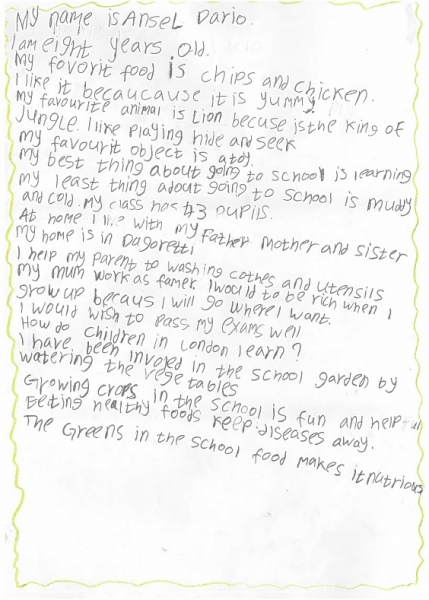 My name is Ansel Dario.
I am eight years old.
My favorit food is chips and chicken.
I like it becaucause it is yummy.
my favourite animal is Lion becuse is the king of
Jungle. I like playing hide and seek
my favourit object is a toy.
my best thing about going to school is learning
my least thing about going to school is muddy
and cold. my class has 43 pupils.
At home I live with my Father mother and sister
My home is in Dagoretti
I help my parent to washing cothes and utensils
My mum work as famer. I would to be rich when I
grow up becaus I will go where I want.
I would wish to pass my exams well
How do children in London learn?
I have been invored in the school garden by
watering the vegetables
Growing crops in the school is fun and helpful
Eeting healthy foods keep diseases away.
The Greens in the school food makes it nutrious